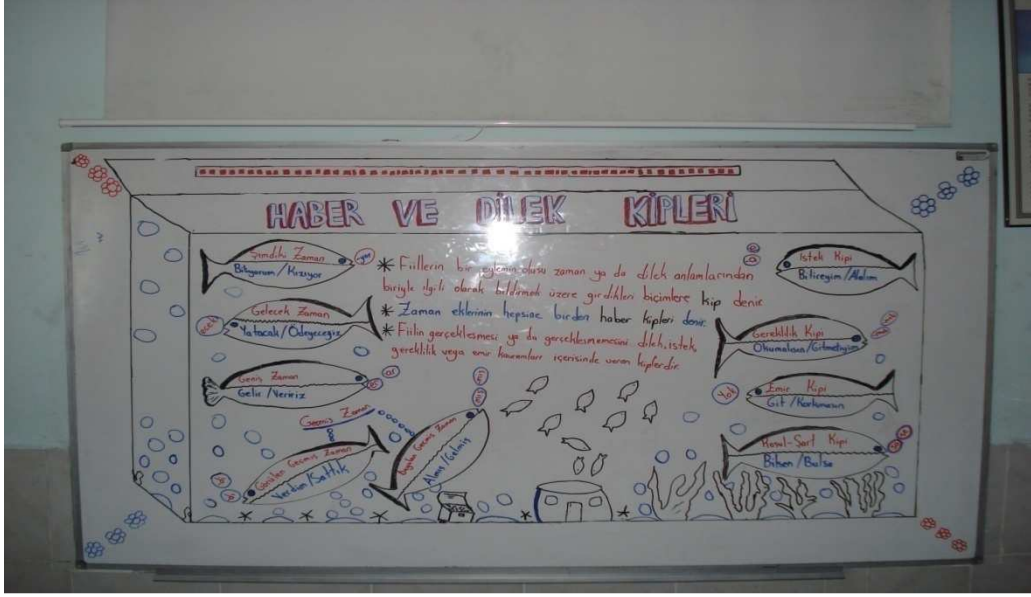 HABER VE DİLEK KİPLERİ
Şimdiki Zaman
Biliyorum / Kızıyor
yor
Gelecek Zaman
Yatacak / Ödeyeceğiz
acak
Geniş Zaman
Gelir / Veririz
er
ar
Geçmiş Zaman
Görülen Geçmiş Zaman
Verdim / Sattık
Duyulan Geçmiş Zaman
Almış / Gelmiş
* Fiillerin bir eylemin oluşu zaman ya da dilek anlamlarından
biriyle ilgili olarak bildirmek üzere girdikleri biçimlere kip denir
* Zaman eklerinin hepsine birden haber kipleri denir.
* Fiilin gerçekleşmesi ya da gerçekleşmemesini dilek, istek,
gereklilik veya emir kavramları içerisinde veren kiplerdir.
İstek Kipi
Bilireyim / Alalım
Gereklilik Kipi
Emir Kipi
Git / Korkmasın
Yok
Koşul-Şart Kipi
Bilsen / Bulsa